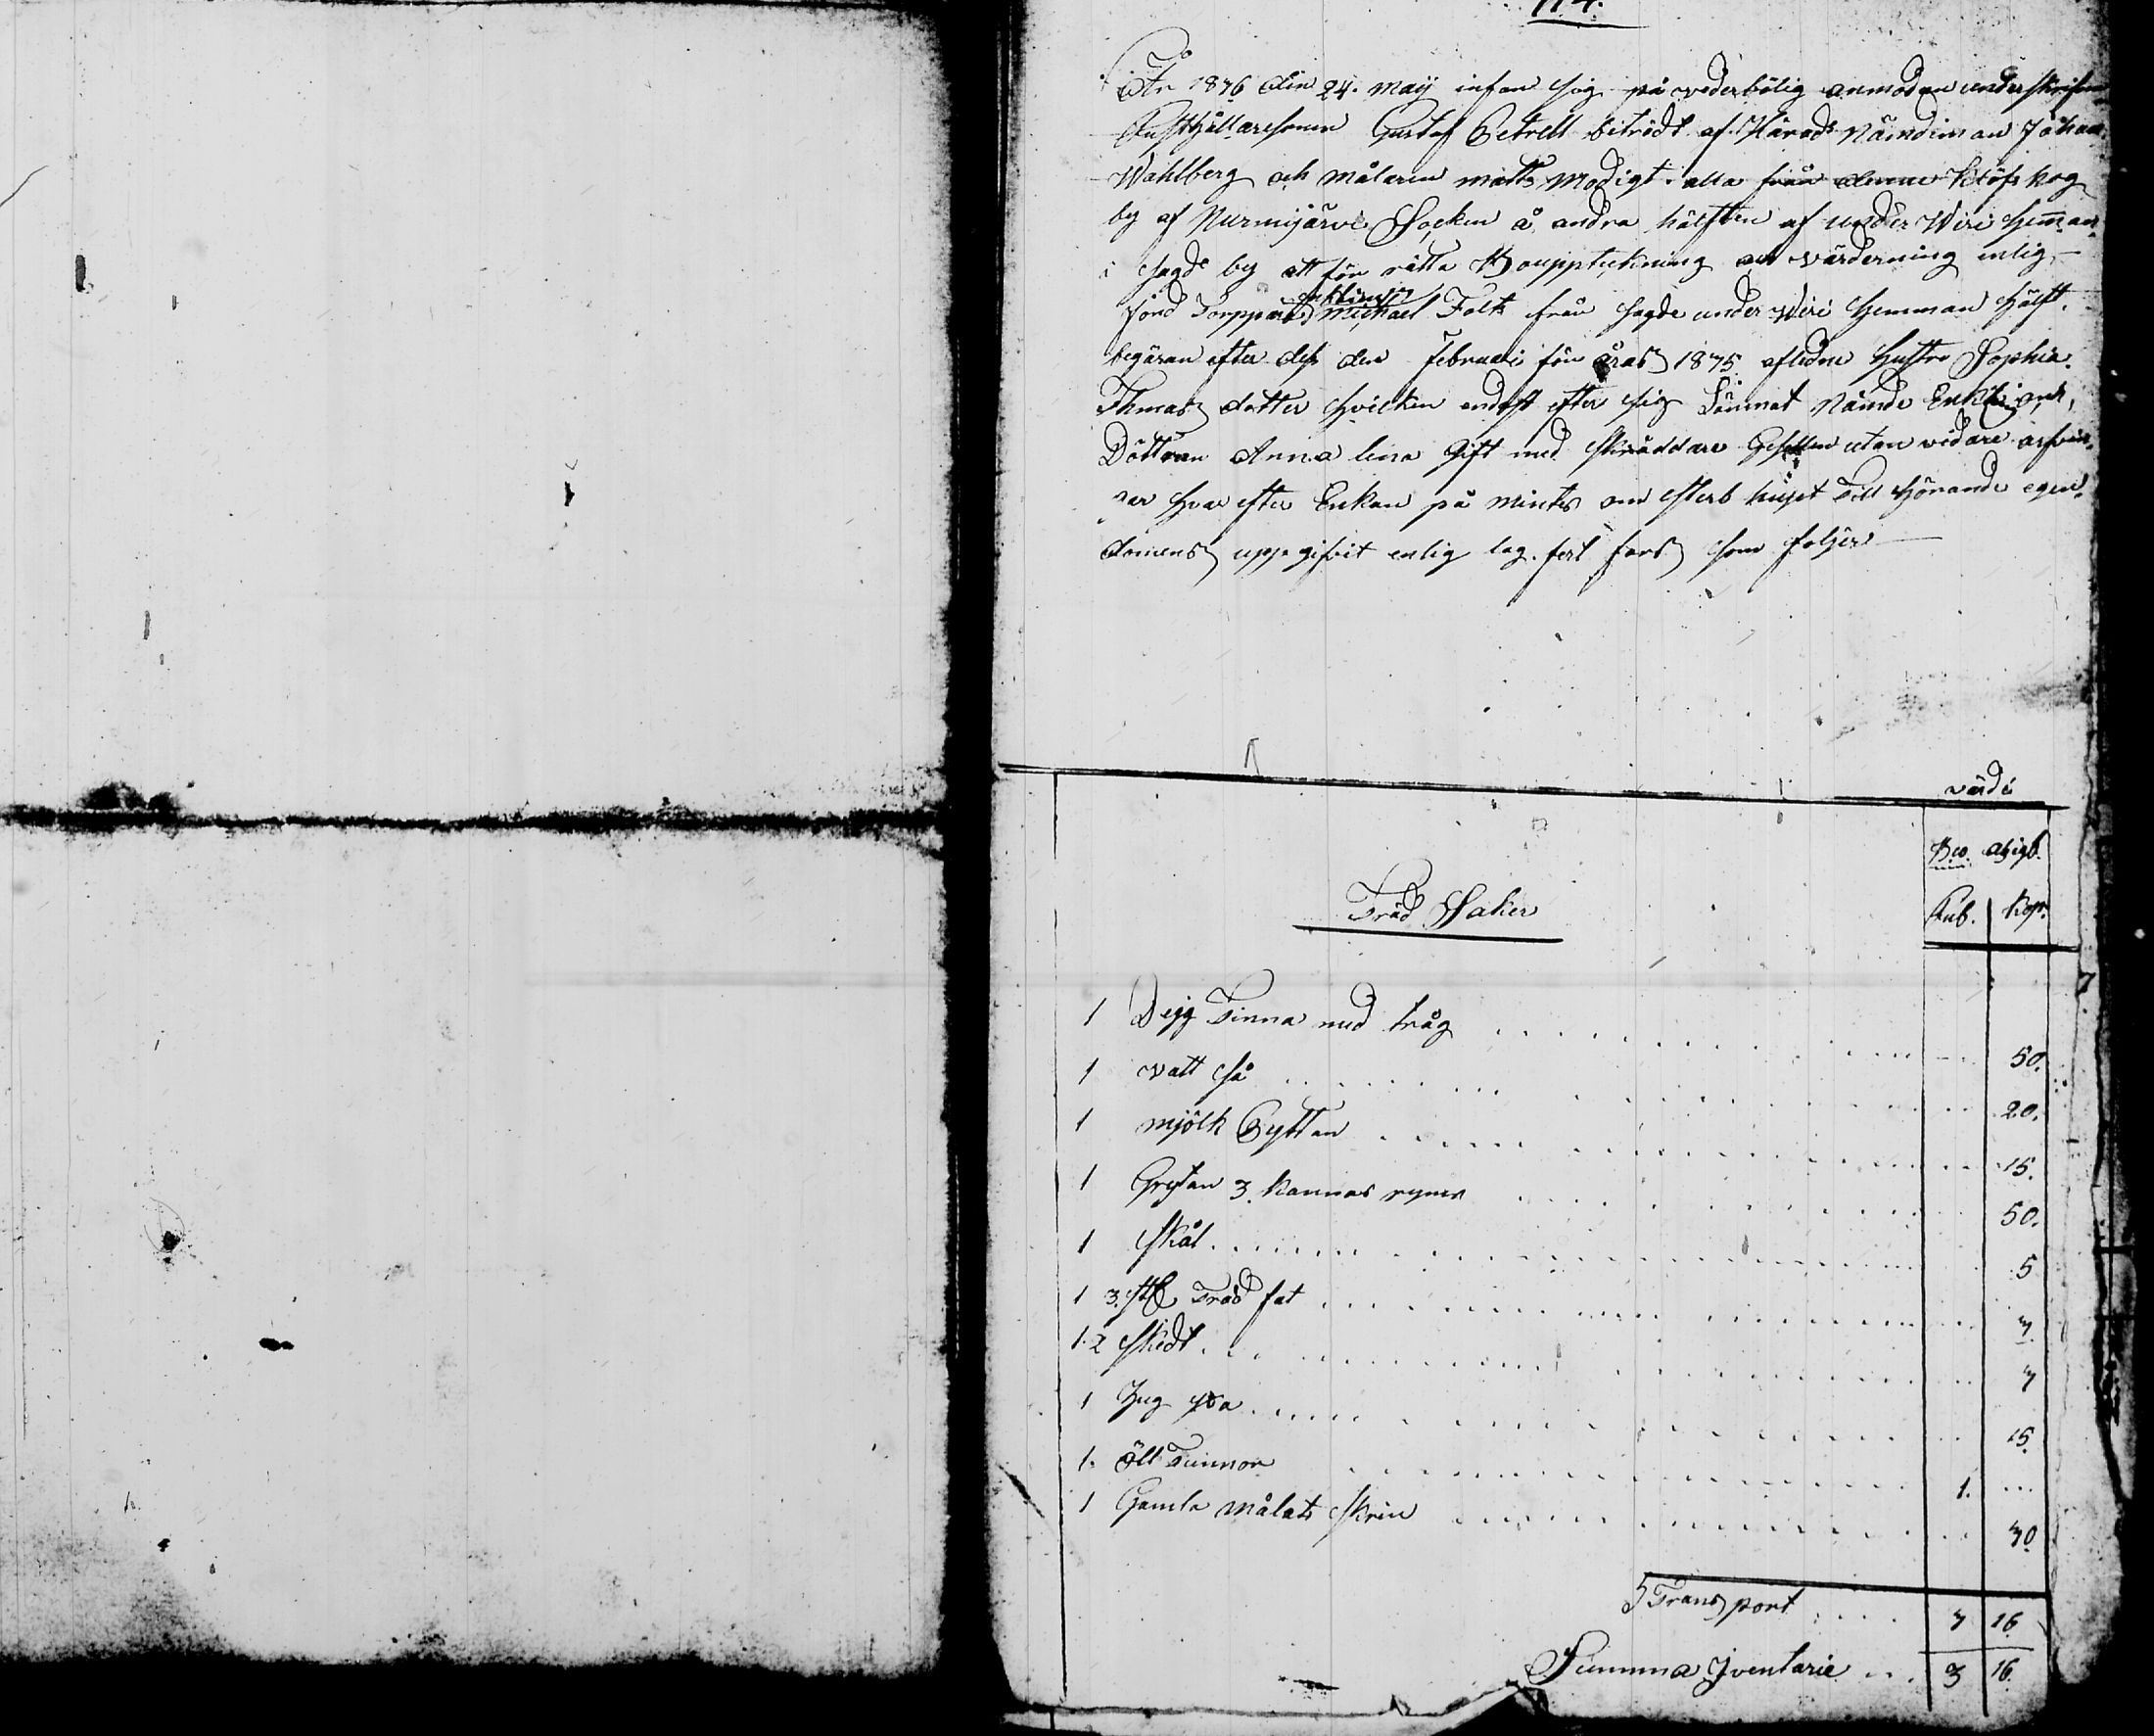 114.
År 1876 den 24. Maÿ infan sig på vederbölig anmodan underskrifen
Rusthållaresonen Gustaf Betrell biträdt af Härads Nämdeman Johan
Wahlberg och målaren Matts Modigt. alla från denne Klöfskog
by af Nurmijärvi Socken å andra hälften af under Wiri Hemman
i sagde by att för rätta Bouppteckning och värderning enlig
fönd Torpparen Enklingen Michael Falk från sagde under Wiri Hemman Hälft.
begäran efter dess den Februari för åras 1875 aflidne Hustro Sophia
Thmas dotter Hvilken endast efter sig Lämnat Nämde Enkling och,
Döttren Anna Lena Gift med Skräddare Gesellen utan vidare arfvin-
gar Hvar efter Enkan på mintes om sterb huset Till hörande egen-
domens uppgifvit enlig lag. fert fars som följer
värde
Bco. asigt.
Rub. Kop.
Träd Saker
1 Degg Tinna med tråg 50.
1 vatt så 20.
1 mjölk Byttan 15.
1 Grytan 3. Kannas rymn 50.
1 Skål 5
1 3. st Träd fat 7.
1.2 Skedt 7
1 Hug yxa 15.
1. Öll Tunnor 1. ...
1 Gamla målats Skrin 30
Transport 3 16
Summa Jventarie 3 16.